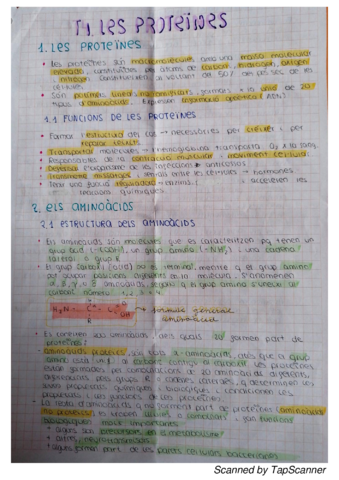 T4. LES PROTEÏNES
1. LES PROTEÏNES
• Les proteïnes són macromolècules amb una massa molecular
elevada, constituïdes per àtoms de carboni, hidrogen, oxigen i
nitrogen. Constitueixen al voltant del 50% del pes sec de les
cèl·lules.
• Són polímers lineals formats a la unió de 20
tipus d'aminoàcids. Expressen informació genètica (ADN)
1.1 FUNCIONS DE LES PROTEÏNES
• Formar l'estructura del cos → necessàries per créixer i per
reparar teixits
• Transportar molècules → hemoglobina transporta O2 a la sang
• Responsables de la contracció muscular i moviment cel·lular
• Defensar l'organisme de les infeccions → anticossos
• Transmetre missatges i senyals entre les cèl·lules → hormones
• Tenir una funció reguladora → enzims: acceleren les
reaccions químiques
2. ELS AMINOÀCIDS
2.1 ESTRUCTURA DELS AMINOÀCIDS
• Els aminoàcids són molècules que es caracteritzen pq tenen un
grup àcid (-COOH), un grup amino (-NH2) i una cadena
lateral o grup R
• El grup carboxil (àcid) és terminal, mentre q el grup amino
pot ocupar posicions diferents en la molècula. S'anomenen
α, β, γ, δ aminoàcids segons q el grup amino s'uneix al
carboni número 1, 2, 3, 4.
H2N - C - C
OH
→ fórmula general
aminoàcid
• Es coneixen aminoàcids, dels quals 20 formen part de
proteïnes
• aminoàcids proteics: són tots α-aminoàcids, atès que el grup
amino està unit al carboni contigu al carboxil. Les proteïnes
estan formades per combinacions de 20 aminoàcids diferents,
pels grups R = cadenes laterals, q determinen les
seves propietats químiques i biològiques i condicionen les
propietats i les funcions de les proteïnes.
• La resta d'aminoàcids q no formen part de proteïnes (aminoàcids
no proteics) es troben lliures o combinats i fan funcions
biològiques molt importants:
• alguns són precursors en el metabolisme
• altres, neurotransmissors
• alguns formen part de les parets cel·lulars bacterianes
Scanned by TapScanner